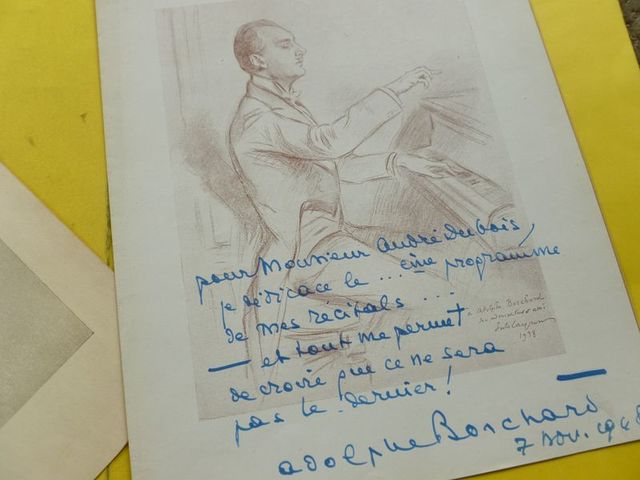 pour Monsieur André Dubois,
je dédicace le ... ème programme
de mes récitals ...
— et tout me permet
de croire que ce ne sera
pas le dernier !
Adolphe Borchard
7 nov. 1948
à Adolphe Borchard
1928